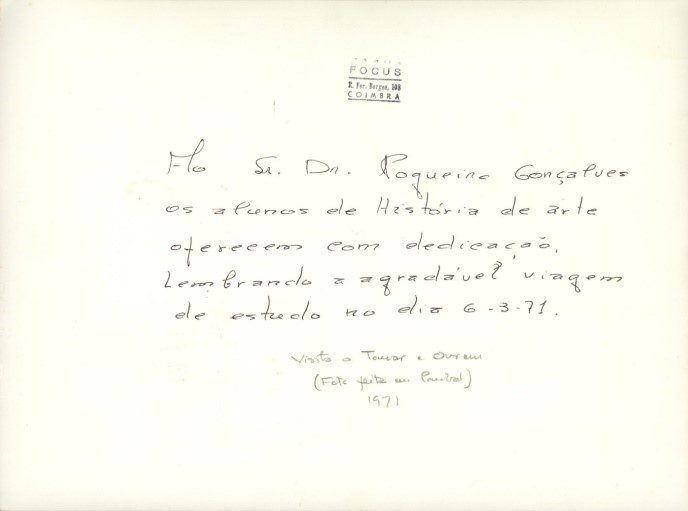 FOCUS
R. Fer. Borges, 108
COIMBRA
Ao Sr. Dr. Nogueira Gonçalves
os alunos de História de arte
oferecem com dedicação,
Lembrando a agradável viagem
de estudo no dia 6-3-71.
Visita a Tomar e Ourem
(Foto feita em Pombal)
1971